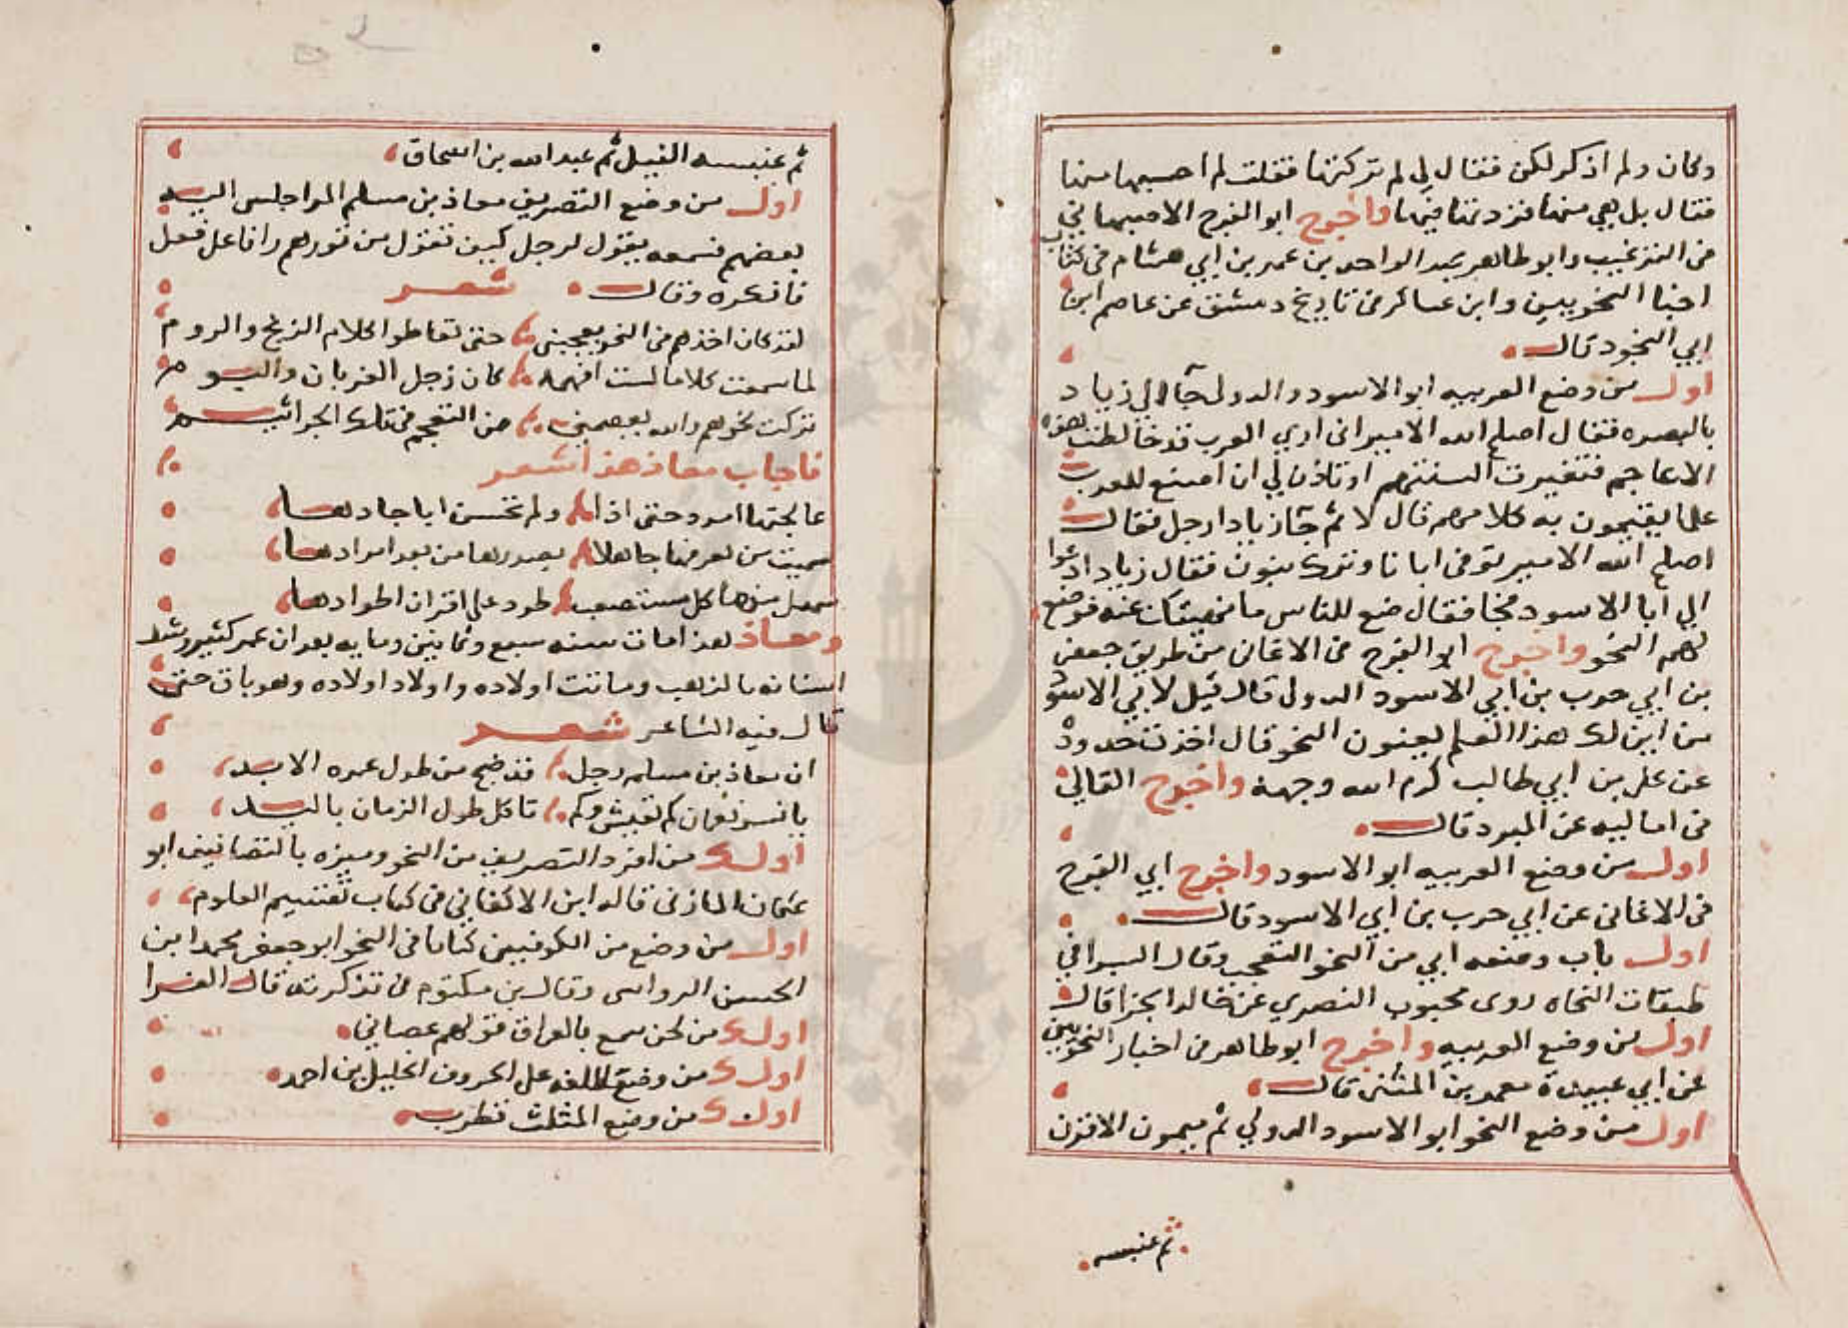 وكان ولم اذكر لكن فقال لي لم تركتها فقلت لم احسبها منها
فقال بل هي منها فزدتها فيها واخرج ابو الفرج الاصبهاني
في الترغيب وابو طاهر عبد الواحد بن عمر بن ابي هشام في كتاب
اخبار النحويين وابن عساكر في تاريخ دمشق عن عاصم ابن
ابي النجود قال
اول من وضع العربيه ابو الاسود الدولي جآ الي زياد
بالبصره فقال اصلح الله الامير اني اري العرب قد خالطت هذه
الاعاجم فتغيرت السنتهم اوتاذن لي ان اصنع للعرب
علما يقيمون به كلامهم قال لا ثم جآ زيادا رجل فقال
اصلح الله الامير توفى ابانا وترك بنون فقال زياد ادعوا
الي ابا الاسود فجا فقال ضع للناس ما نهيتك عنه فوضع
لهم النحو واخرج ابو الفرج في الاغاني من طريق جعفر
بن ابي حرب بن ابي الاسود الدولى قال قيل لابي الاسود
من اين لك هذا العلم يعنون النحو قال اخذت حدوده
عن علي بن ابي طالب كرم الله وجهه واخرج القالي
في اماليه عن المبرد قال
اول من وضع العربيه ابو الاسود واخرج ابي الفرج
في الاغاني عن ابي حرب بن ابي الاسود قال
اول باب وضعه ابي من النحو التعجب وقال السيرافي
طبقات النحاه روى محبوب النصري عن خالد الجزا قال
اول من وضع العربيه واخرج ابو طاهر في اخبار النحويين
عن ابي عبيدة معمر بن المثنى قال
اول من وضع النحو ابو الاسود الدولي ثم ميمون الاقرن
ثم عنبسه
ثم عنبسه الفيل ثم عبد الله بن اسحاق
اول من وضع التصريف معاذ بن مسلم الهرا جلس اليه
بعضهم فسمعه يقول لرجل كيف تقول من تؤزهم ازا فاعل فعل
فانكره وقال شعر
لقد كان اخذهم في النحو يعجبني حتى تعاطوا كلام الزنج والروم
لما سمعت كلاما لست افهمه كان زجل الغربان والبوم
تركت نحوهم والله يعصمني من التعجم في تلك الجراثيم
فاجاب معاذ هذا شعر
عالجتها امرد حتى اذا ولم تحسن اباجادها
سميت من يعرفها جاهلا يصدرها من بعد ايرادها
سهل منها كل مستصعب طود على اقران اطوادها
ومعاذ هذا مات سنه سبع وثمانين ومايه بعد ان عمر كثير وشد
اسنانه بالذهب وماتت اولاده واولاد اولاده وهو باق حتى
قال فيه الشاعر شعر
ان معاذ بن مسلم رجل قد ضج من طول عمره الابد
يا نسر لقمان كم تعيش وكم تاكل طول الزمان يا لبد
اول من افرد التصريف من النحو وميزه بالتصانيف ابو
عثمان المازني قاله ابن الاكفاني في كتاب تقسيم العلوم
اول من وضع من الكوفيين كتابا في النحو ابو جعفر محمد ابن
الحسن الرواسي وقال بن مكتوم في تذكرته قال الفرا
اول من لحن سمع بالعراق قولهم عصاتي
اول من وضع اللغه على الحروف الخليل بن احمد
اول من وضع المثلث قطرب